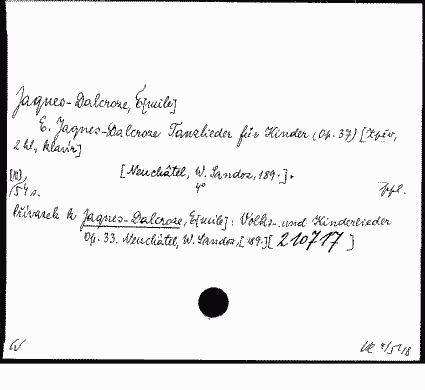 Jaques-Dalcroze, É[mile]
E. Jaques-Dalcroze Tanzlieder für Kinder (Op. 37) [Zpěv,
2 hl., klavír]
[Neuchâtel, W. Sandoz, 189.].
[10], 54 s. 4° Ppl.
Přívazek k Jaques-Dalcroze, É[mile]: Volks- und Kinderlieder
Op. 33. Neuchâtel, W. Sandoz, [189.] [210717]
W